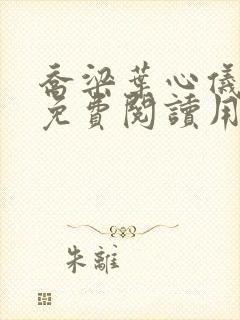 喬梁葉心儀
免費閱讀用
朱離